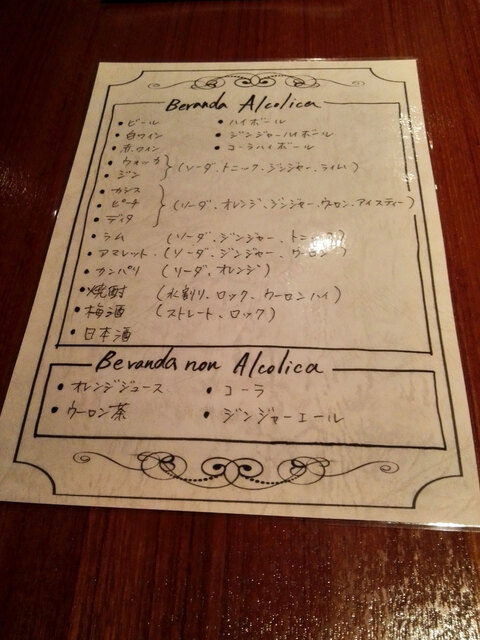 Beranda Alcolica
• ビール • ハイボール
• 白ワイン • ジンジャーハイボール
• 赤ワイン • コークハイボール
• ウォッカ
• ジン
(ソーダ、トニック、ジンジャー、ライム)
• カシス
• ピーチ
• ディタ
(ソーダ、オレンジ、ジンジャー、ウーロン、アイスティー)
• ラム (ソーダ、ジンジャー、トニック)
• アマレット (ソーダ、ジンジャー、ウーロン)
• カンパリ (ソーダ、オレンジ)
• 焼酎 (水割り、ロック、ウーロンハイ)
• 梅酒 (ストレート、ロック)
• 日本酒
Beranda non Alcolica
• オレンジジュース • コーラ
• ウーロン茶 • ジンジャーエール